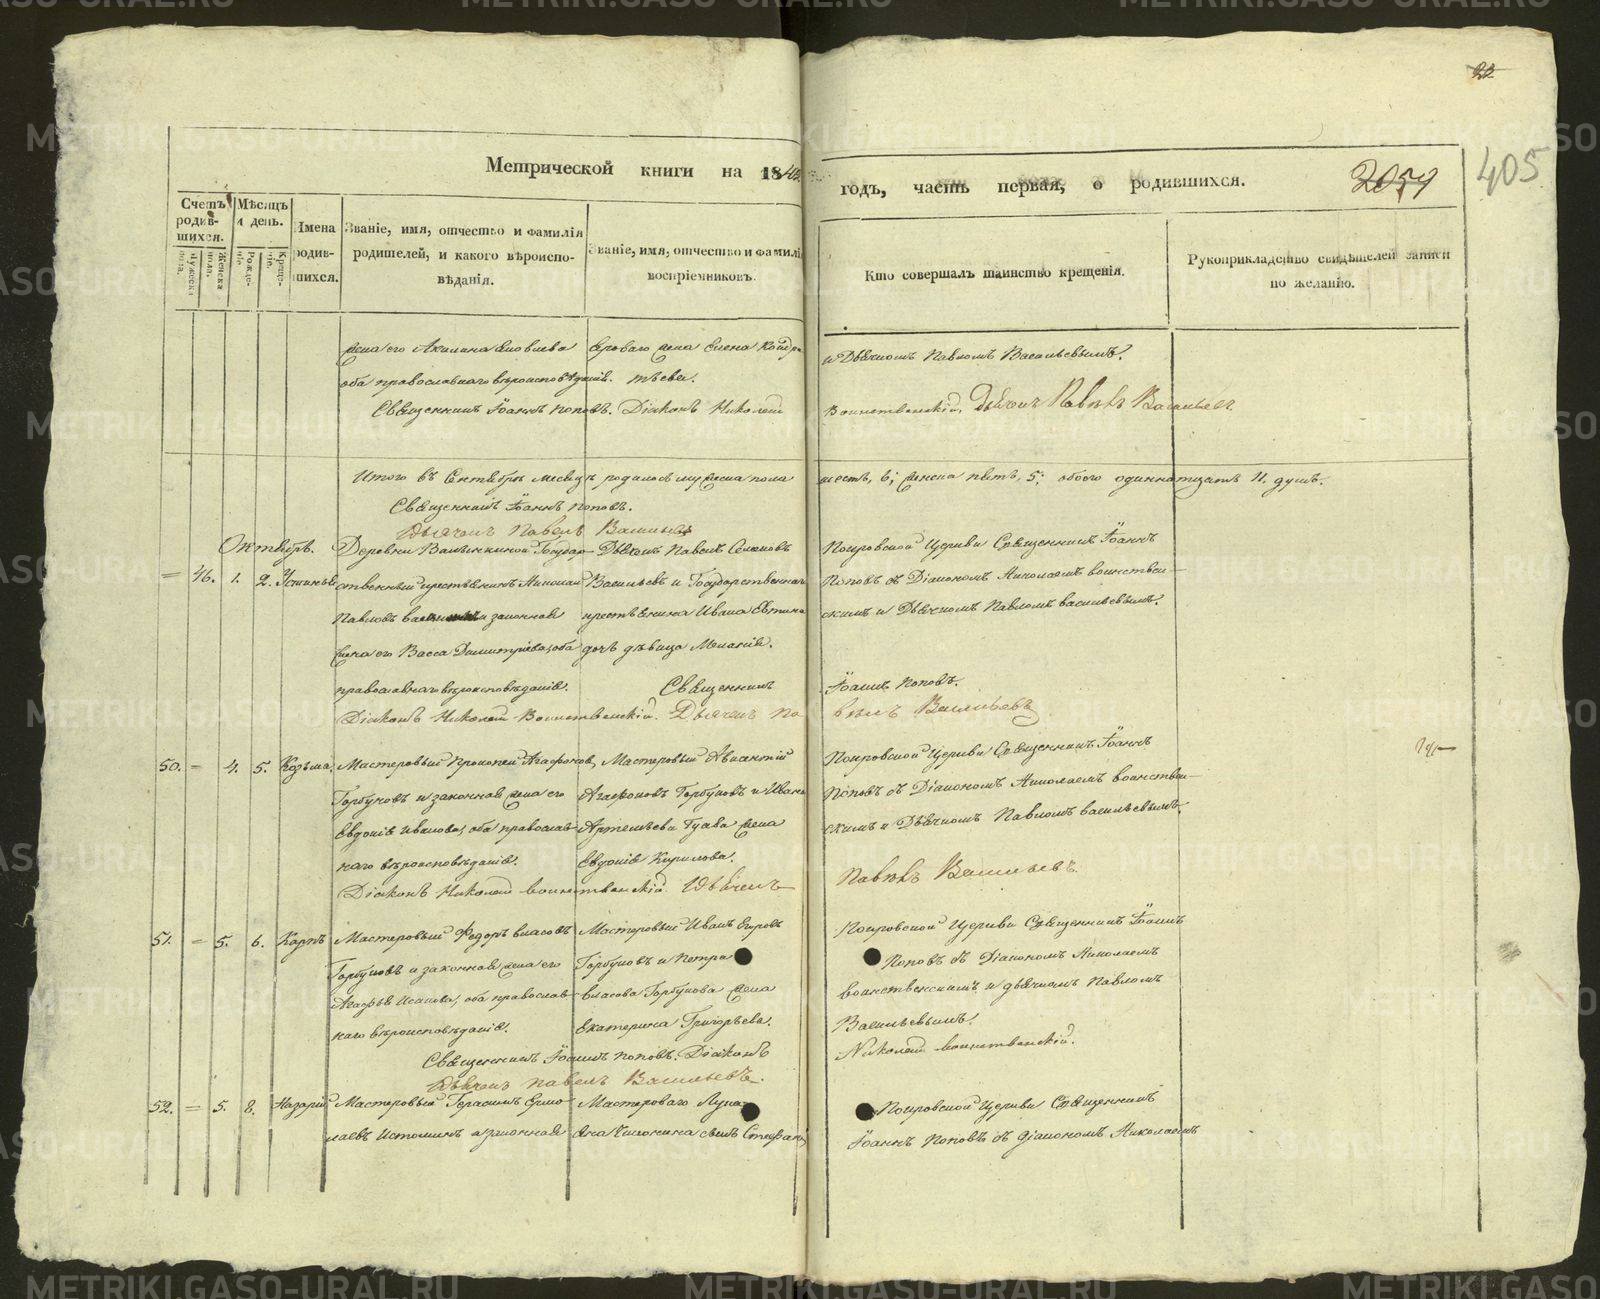 22
405
2059
Метрической книги на 1840
годъ, часть первая, о родившихся.
Счетъ родившихся.
Мѣсяцъ и день.
Имена родившихся.
Званіе, имя, отчество и фамилія родителей, и какого вѣроисповѣданія.
Званіе, имя, отчество и фамилія воспріемниковъ.
Кто совершалъ таинство крещенія.
Рукоприкладство свидѣтелей записи по желанію.
Мужеска пола.
Женска пола.
Рожденіе.
Крещеніе.
жена его Акилина Яковлева
оба православнаго вѣроисповѣданія.
жена Елена
и Дьячкомъ Павломъ Васильевымъ.
Священникъ Іоаннъ Поповъ. Діаконъ Николай Воинственскій. Дьячекъ Павелъ Васильевъ
Итого въ Сентябрѣ месяцѣ родилося мужеска пола шесть, 6; женска пять, 5; обоего одиннатцать 11. душъ.
Священникъ Іоаннъ Поповъ.
Дьячекъ Павелъ Васильевъ
Октября.
46. 1. 2. Устинья
Деревни Государ-
ственный крестьянинъ Николай
Павловъ законная
жена его Васса Димитріева, оба
православнаго вѣроисповѣданія.
Дьячекъ Павелъ Семеновъ
Васильевъ и Государственнаго
крестьянина Ивана
дочь дѣвица Меланія.
Покровской Церкви Священникъ Іоаннъ
Поповъ съ Діакономъ Николаемъ Воинствен-
скимъ и Дьячкомъ Павломъ Васильевымъ.
Священникъ Іоаннъ Поповъ.
Діаконъ Николай Воинственскій. Дьячекъ Павелъ Васильевъ
50. = 4. 5. Козьма.
Мастеровый Прокопей Агафоновъ,
Горбуновъ и законная жена его
Евдокія Иванова, оба православ-
наго вѣроисповѣданія.
Мастеровый Авксентій
Агафоновъ Горбуновъ и Ивана
Артемьева Гусева жена
Евдокія Кирилова.
Покровской Церкви Священникъ Іоаннъ
Поповъ съ Діакономъ Николаемъ Воинствен-
скимъ и Дьячкомъ Павломъ Васильевымъ.
Діаконъ Николай Воинственскій. Дьячекъ Павелъ Васильевъ.
51. = 5. 6. Карпъ
Мастеровый Федоръ Власовъ
Горбуновъ и законная жена его
Агафья Исакова, оба православ-
наго вѣроисповѣданія.
Мастеровый Иванъ Егоровъ
Горбуновъ и Петра
Власова Горбунова жена
Екатерина Григорьева.
Покровской Церкви Священникъ Іоаннъ
Поповъ съ Діакономъ Николаемъ
Воинственскимъ и дьячкомъ Павломъ
Васильевымъ.
Священникъ Іоаннъ Поповъ. Діаконъ Николай Воинственскій.
Дьячекъ Павелъ Васильевъ.
52. = 5. 8. Назарій
Мастеровый Герасимъ Ермо-
лаевъ Истоминъ и законная
Мастероваго
сынъ Стефанъ
Покровской Церкви Священникъ
Іоаннъ Поповъ съ діакономъ Николаемъ
METRIKI.GASO-URAL.RU